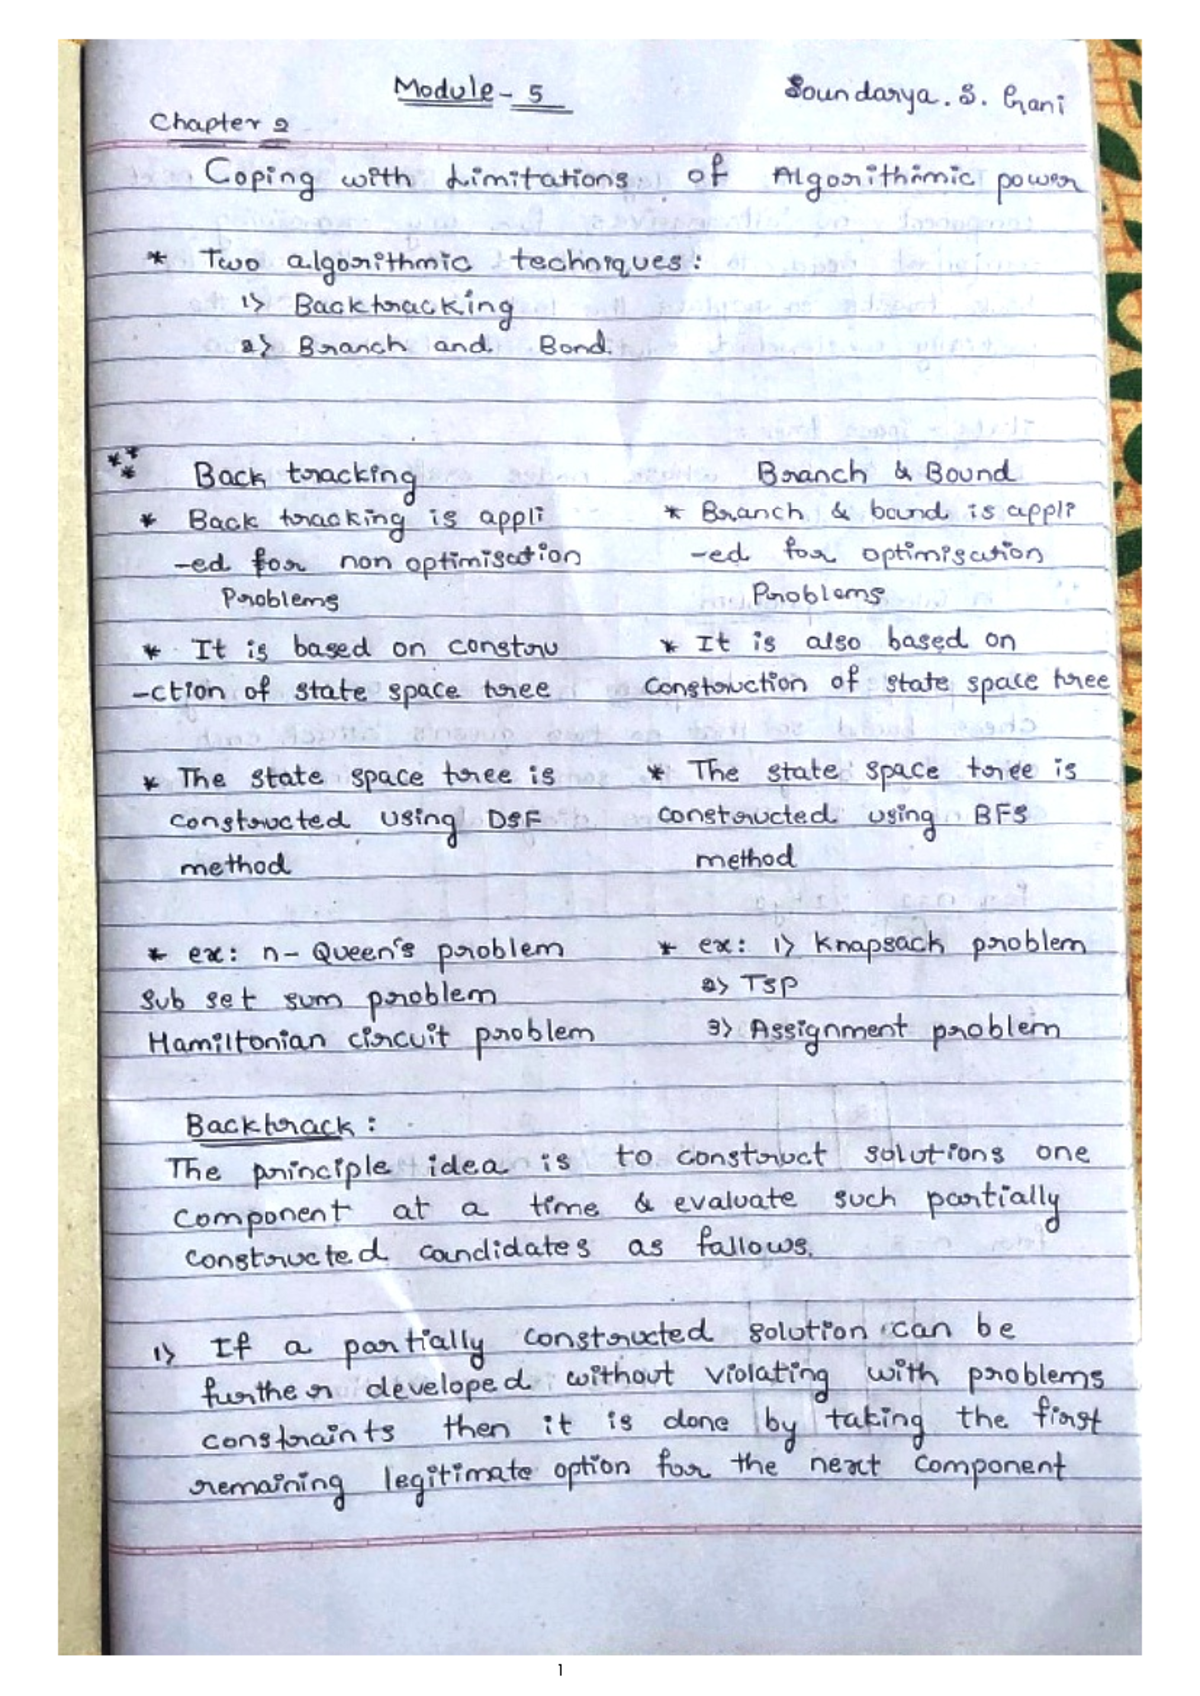 Module - 5
Soundarya . S. Gani
Chapter 2
Coping with Limitations of Algorithmic power
* Two algorithmic techniques :
1> Backtracking
2> Branch and Bond.
*** Back tracking
* Back tracking is appli
-ed for non optimisation
Problems
* It is based on constru
-ction of state space tree
* The state space tree is
constructed using DSF
method
* ex: n- Queen's problem
Sub set sum problem
Hamiltonian circuit problem
Branch & Bound
* Branch & bound is appli
-ed for optimisation
Problems
* It is also based on
Construction of state space tree
* The state space tree is
constructed using BFS
method
* ex: 1> Knapsack problem
2> TSP
3> Assignment problem
Backtrack :
The principle idea is to construct solutions one
Component at a time & evaluate such partially
constructed candidates as fallows.
1> If a partially constructed solution can be
further developed without violating with problems
constraints then it is done by taking the first
remaining legitimate option for the next component
1